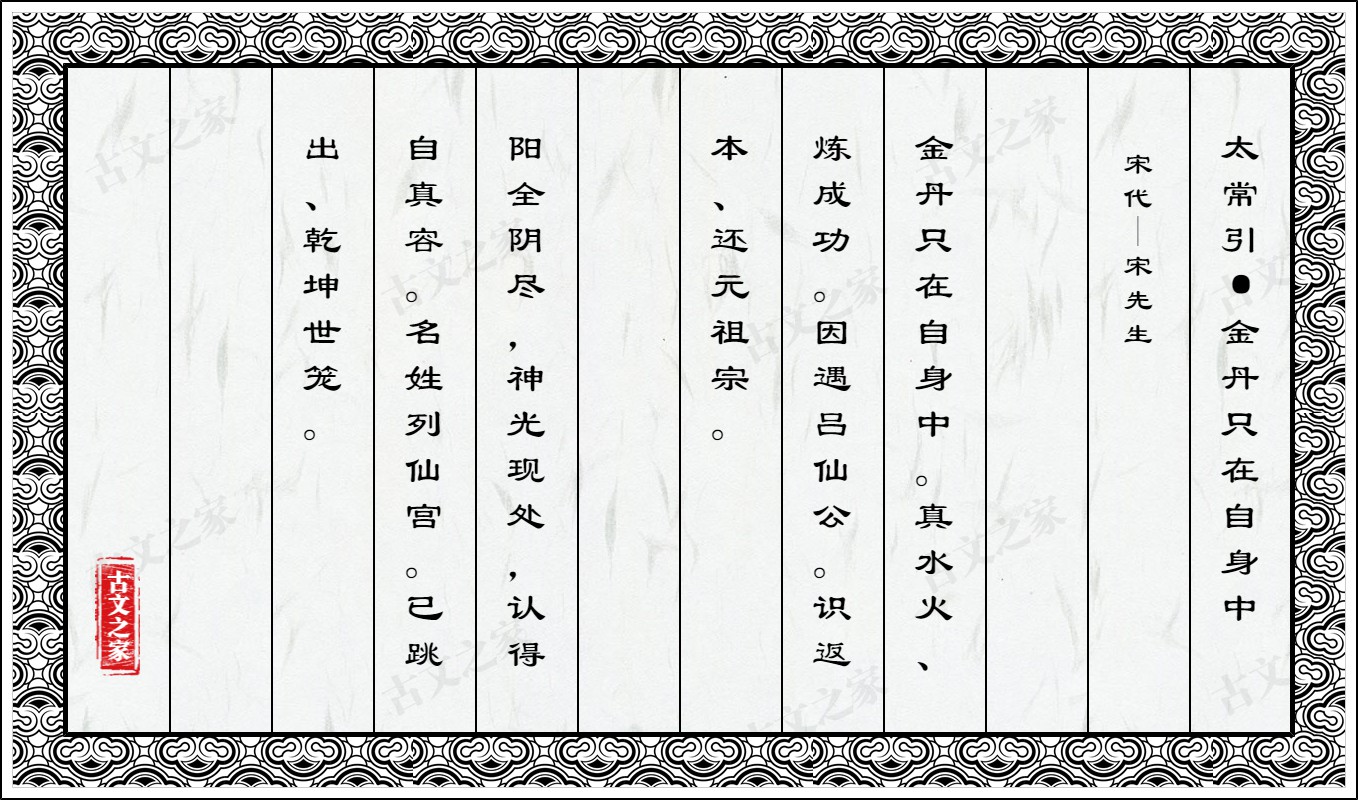 太常引●金丹只在自身中
宋代｜宋先生
金丹只在自身中。真水火、
炼成功。因遇吕仙公。识返
本、还元祖宗。
阳全阴尽，神光现处，认得
自真容。名姓列仙宫。已跳
出、乾坤世笼。
古文之家